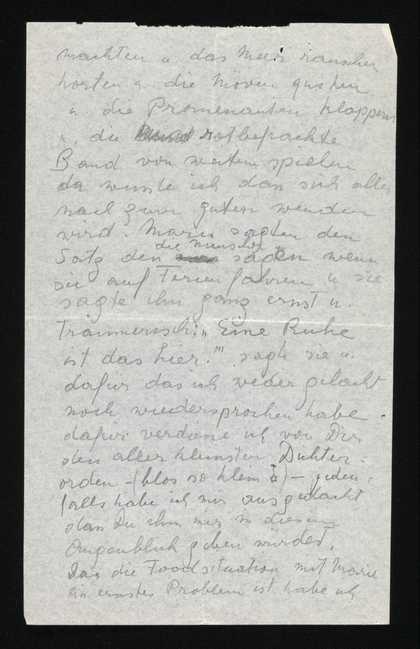 machten u das Meer rauschen
hörten u die Möven
u die Promenanten klappern
u die rotbefrackte
Band von weitem spielen
da wusste ich dass sich alles
nach zum guten wenden
wird. Marie sagten den
Satz den die Menschen sagen wenn
sie auf Ferien fahren u sie
sagte ihn ganz ernst u.
träumerisch: „Eine Ruhe
ist das hier!" sagte sie u.
dafür das ich weder gelacht
noch wiedersprochen habe
dafür verdiene ich von Dir
den aller kleinsten Dichter-
orden – (blos so klein) – jeden-
falls habe ich mir ausgedacht
dass Du ihn mir in diesem
Augenblick geben würdest.
Das die Foodsituation mit Marie
ein ernstes Problem ist habe ich